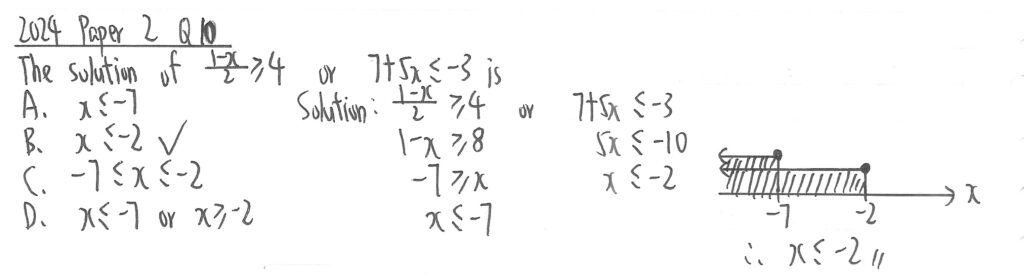 2024 Paper 2 Q10
The solution of \frac{1-x}{2} ≥ 4 or 7+5x ≤ -3 is
A. x ≤ -7
B. x ≤ -2 ✓
C. -7 ≤ x ≤ -2
D. x ≤ -7 or x ≥ -2
Solution: \frac{1-x}{2} ≥ 4 or 7+5x ≤ -3
1-x ≥ 8 5x ≤ -10
-7 ≥ x x ≤ -2
x ≤ -7
x
-7 -2
∴ x ≤ -2 //